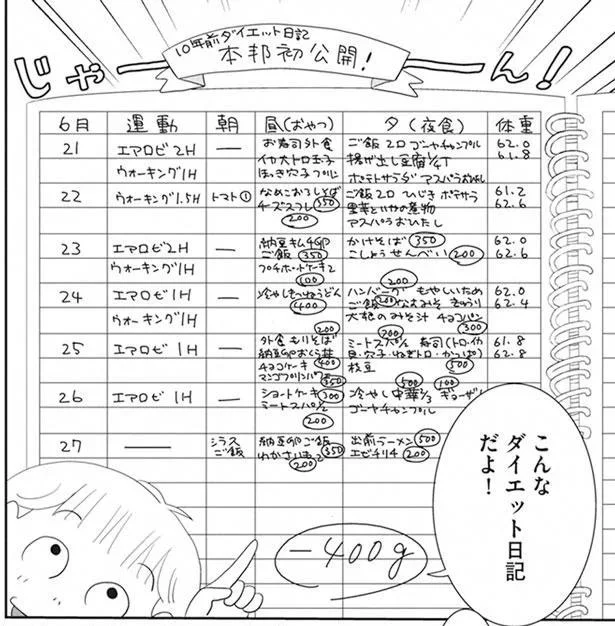 10年前ダイエット日記
本邦初公開!
じゃーーん!
6月 運動 朝 昼(おやつ) 夕(夜食) 体重
21 エアロビ2H — お寿司外食 ご飯 2口 ゴーヤチャンプル 62.0
イカ大トロ玉子 揚げ出し豆腐1/4丁 61.8
ウォーキング1H ほっき穴子 ポテトサラダ アスパラ
22 ウォーキング1.5H トマト① なめこおろしそば ご飯 2口 ひじき ポテサラ 61.2
チーズスフレ 350 62.6
200 アスパラおひたし
23 エアロビ2H — 納豆キムチ かけそば 350 62.0
ご飯 350 こしょうせんべい 200 62.6
ウォーキング1H プチホットケーキ2
100 200
24 エアロビ1H — 冷やしきつねうどん ハンバーグ もやしいため 62.0
400 ご飯 200 なすみそ きゅうり 62.4
ウォーキング1H 大根のみそ汁 チョコパン
200 700 300
25 エアロビ1H — 外食 もりそば ミートスパ1/2 寿司(トロ・イカ 61.8
納豆 おくら丼 貝・穴子・ねぎトロ・かっぱ) 62.8
チョコケーキ 400 枝豆 500
マンゴプリン 350 500 100
26 エアロビ1H — ショートケーキ 300 冷やし中華2/3 ギョーザ
ミートスパ1/2 ゴーヤチャンプル
200
27 — シラス 納豆 ご飯 出前ラーメン 500
ご飯 わかさいも2 350 エビチリ4 200
200
-400g
こんな
ダイエット日記
だよ!